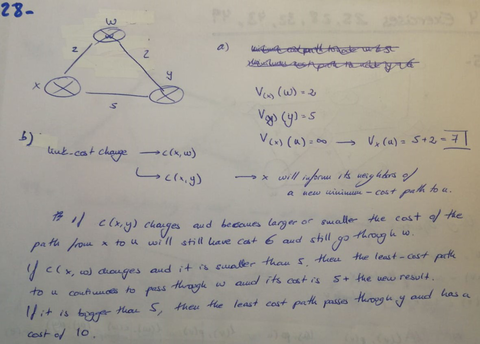 28-
w
2
2
x
y
5
a)
V(x) (w) = 2
(y) = 5
V(x) (u) = ∞ → Vx (u) = 5+2 = 7
b)
link-cost change → c(x,w)
↳ c(x,y) → x will inform its neighbors of
a new minimum-cost path to u.
if c(x,y) changes and becomes larger or smaller the cost of the
path from x to u will still have cost 6 and still go through w.
If c(x,w) changes and it is smaller than 5, then the least-cost path
to u continues to pass through w and its cost is 5+ the new result.
If it is bigger than 5, then the least cost path passes through y and has a
cost of 10.